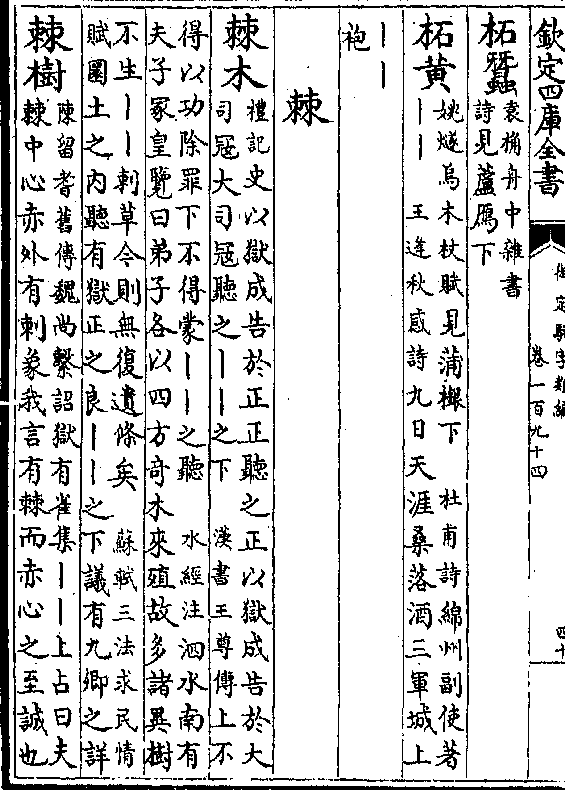 欽定四庫全書
御定駢字類編
卷一百九十四
四十
柘蠶
袁桷舟中雜書
詩見蘆鴈下
柘黃
姚燧烏木杖賦見蒲下 杜甫詩綿州副使著
丨丨 王逢秋感詩九日天涯桑落酒三軍城上
丨丨
袍
棘
棘木
禮記史以獄成告於正正聽之正以獄成告於大
司寇大司寇聽之丨丨之下 漢書王尊傳上不
得以功除罪下不得蒙丨丨之聽 水經注泗水南有
夫子冢皇覽曰弟子各以四方奇木來殖故多諸異樹
不生丨丨刺草今則無復遺條矣 蘇軾三法求民情
賦圜土之內聽有獄正之良丨丨之下議有九卿之詳
棘樹
陳留耆舊傳魏尚繫詔獄有雀集丨丨上占曰夫
棘中心赤外有刺象我言有棘而赤心之至誠也